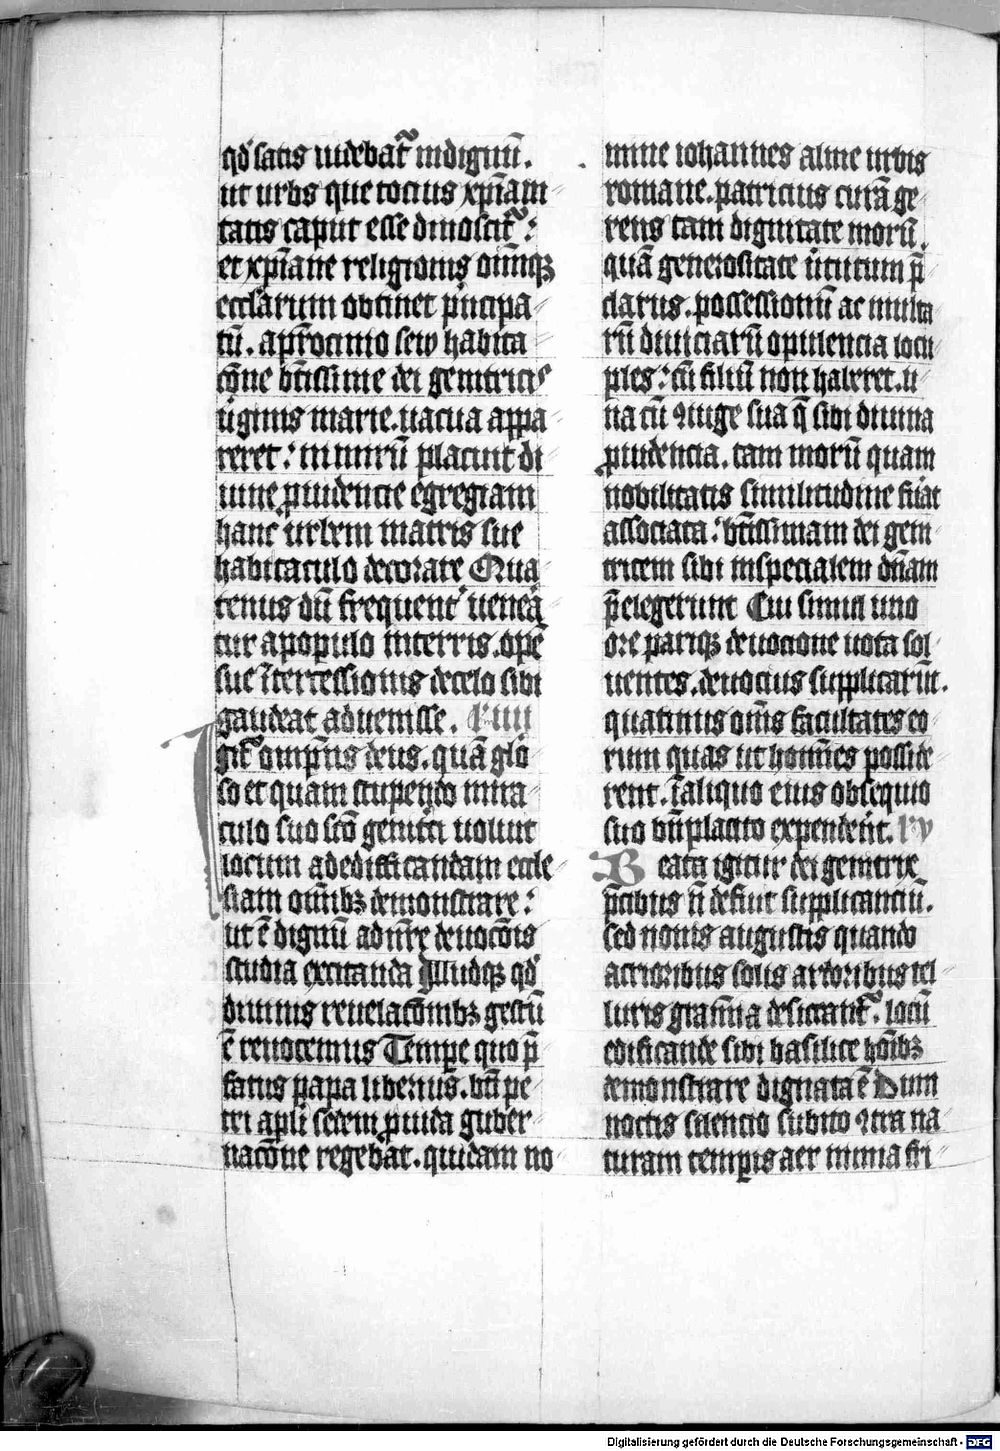 qd' satis uidebat᷑ indignū.
ut urbs que tocius xp̄iani-
tatis caput esse dinoscit᷑:
et xp̄iane religionis om̄iūqꝫ
eccl̄arum obtinet p̄ncipa-
tū. a pat̄rocinio seu habita-
cōne bt̄issime dei genitricis
ūginis marie. uacua appa-
reret: nimirū placuit di-
uine ꝓuidencie egregiam
hanc urbem matris sue
habitaculo decorare Qua-
tenus dū frequent' uenera-
tur a populo in terris. opē
sue īntercessionis de celo sibi
gaudeat aduenisse.
Igit᷑ omp̄ns deus. quā glō-
so et quam stupendo mira-
culo suo scō genit'ci uoluit
locum ad edifficandam eccle-
siam om̄ibꝫ demonstrare:
ut ē dignū ad nr̄e deuocōis
studia excitanda Illudqꝫ qd'
diuinis reuelacōnibꝫ gestū
ē reuocemus Tempe quo p̄-
fatus papa liberius. bt̄i pe-
tri apl̄i sedem ꝓuida guber-
nacōne regebat. quidam no-
mine iohannes alme urbis
romane. patricius curā ge-
rens tam dignitate morū.
quā generositate ūtutum p̄-
clarus. possessionū ac multa-
rū diuiciarū opulencia locu-
ples: cū filiū non haberet. u-
na cū ꝯiuge sua q̄ sibi diuina
ꝓuidencia. tam morū quam
nobilitatis similitudine fu'at
associata: bt̄issimam dei geni-
tricem sibi in specialem dn̄am
p̄elegerunt Cui simul uno
ore pariqꝫ deuocione uota sol-
uentes. deuocius supplicarūt.
quatinus om̄s facultates eo-
rum quas ut homīes posside-
rent. ī aliquo eius obsequio
suo bn̄placito expenderēt.
Beata igitur dei genitrix
p̄cibus n̄ defuit supplicanciū.
sed nonis augustis quando
acrioribus solis ardoribus tel-
luris gramīa desiccant᷑. locū
edificande sibi basilice hōibꝫ
demonstrare dignata ē Dum
noctis silencio subito ꝯtra na-
turam temp̄is aer nimia fri-
Digitalisierung gefördert durch die Deutsche Forschungsgemeinschaft - DFG